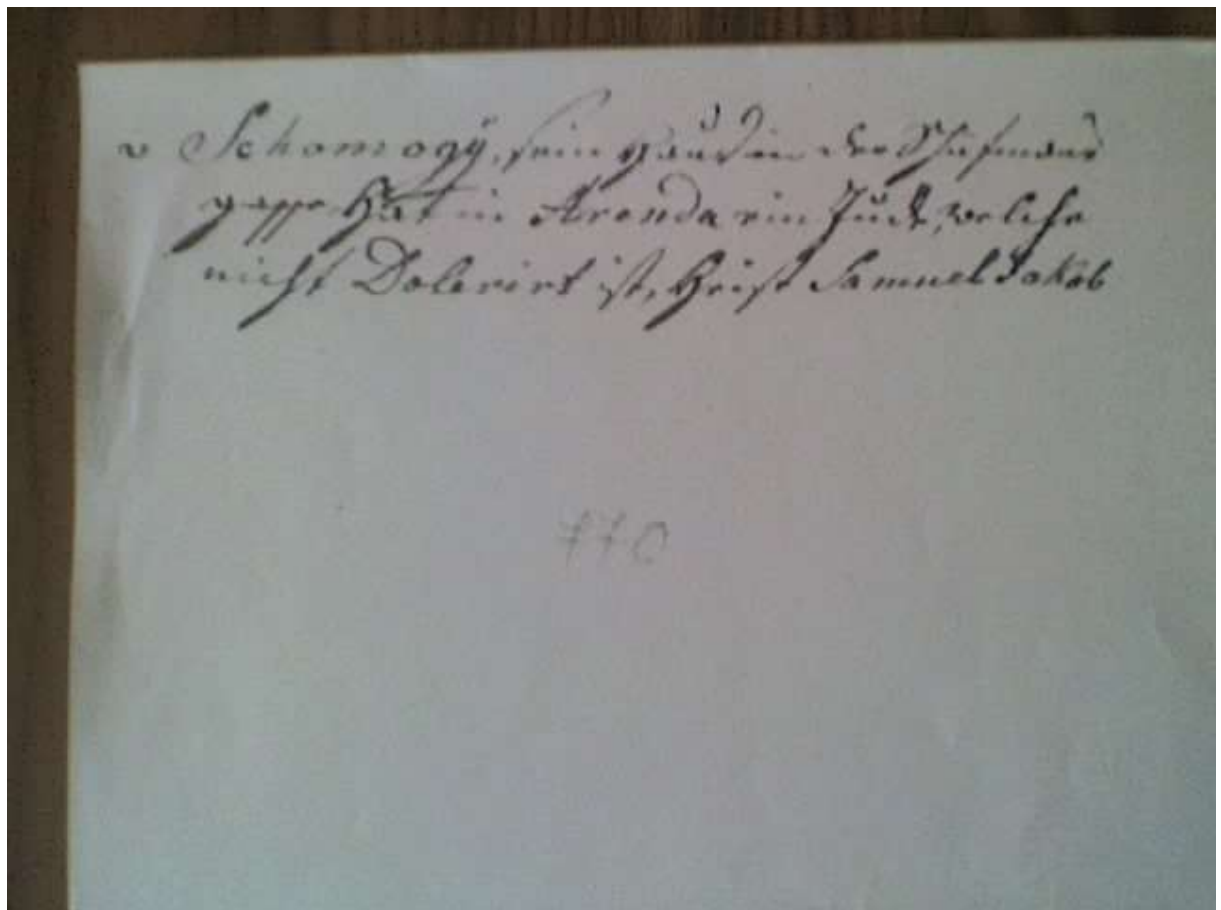 v Schomogÿ, sein Haus in der Schusmans
gasse Hat in Arenda ein Jude, welche
nicht Dolerirt ist, Heist Samuel Jakob
770